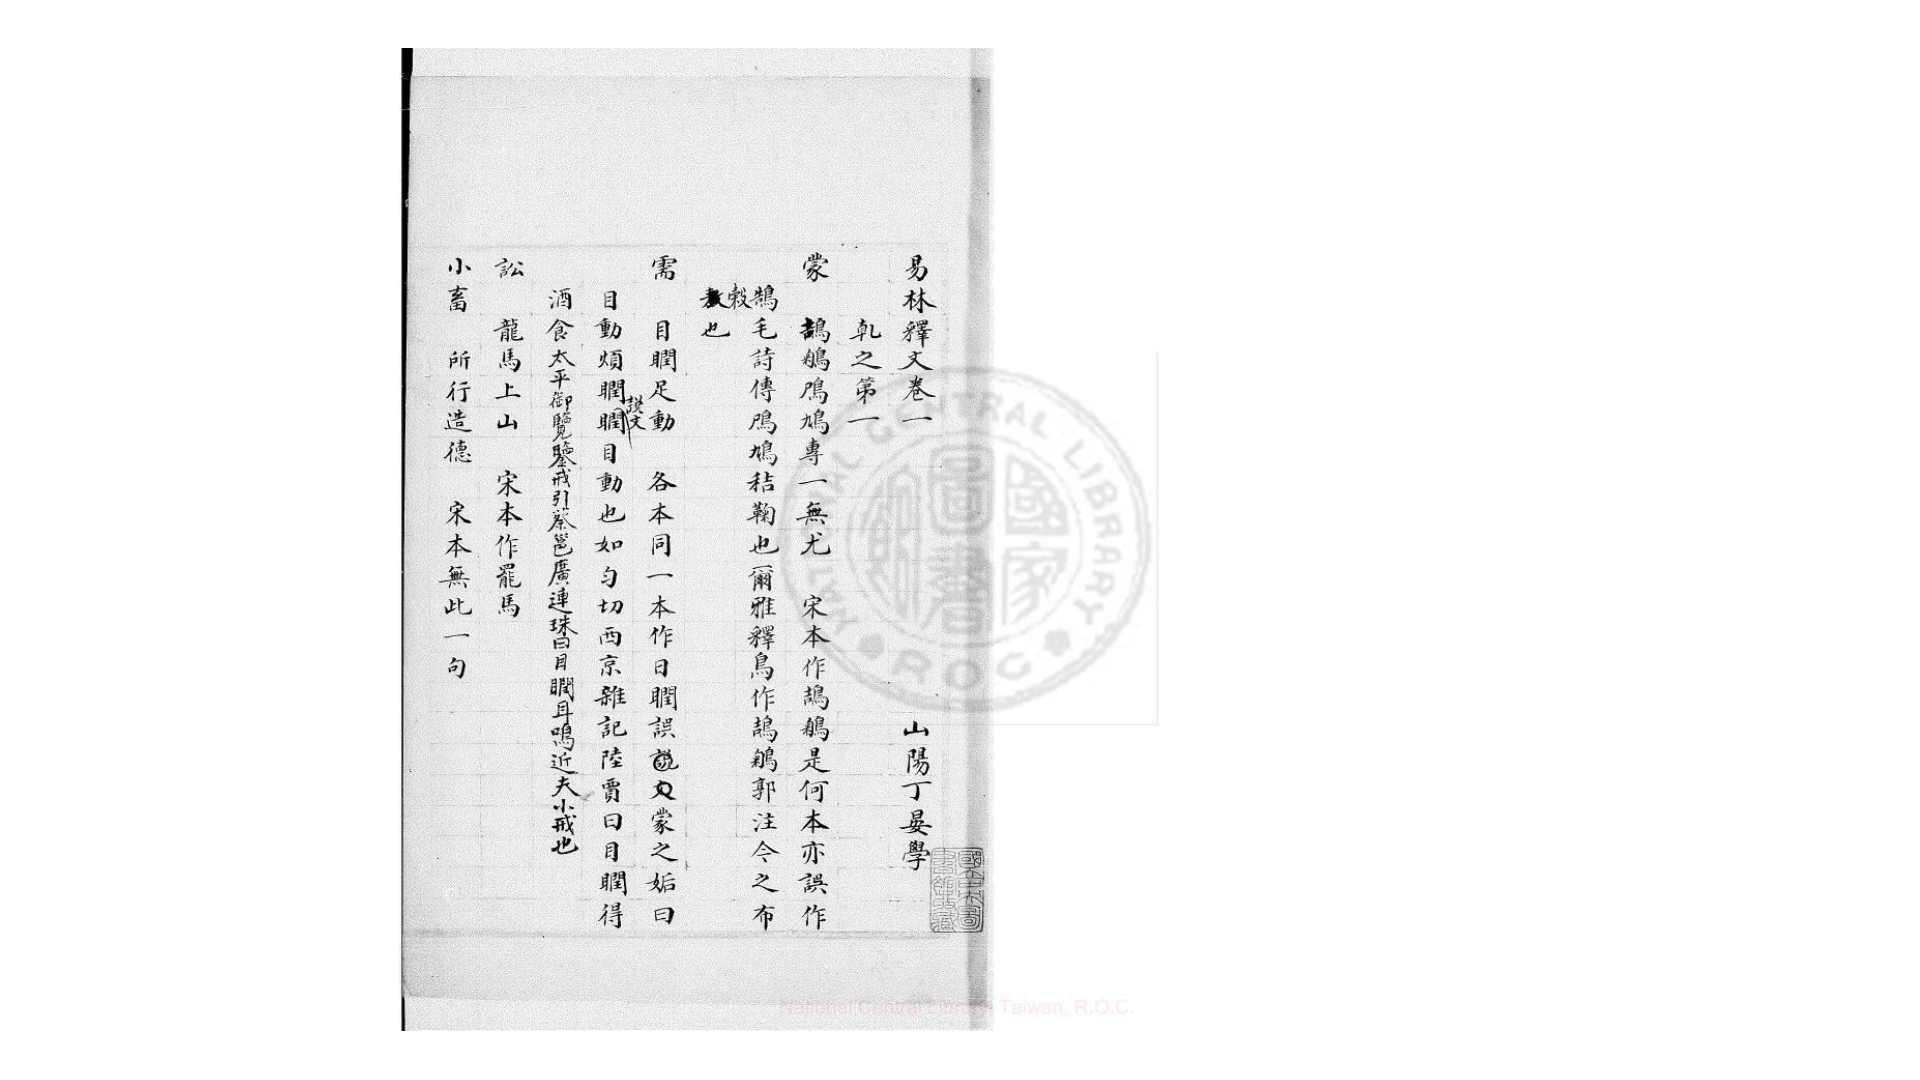 易林釋文卷一 山陽丁晏學
乹之第一
蒙 鵠鵴鳲鳩專一無尤 宋本作鵠鵴是何本亦誤作
鵠毛詩傳鳲鳩秸鞠也爾雅釋鳥作鵠鵴郭注今之布
榖也
需 目瞤足動 各本同一本作日瞤誤蒙之姤曰
目動煩瞤說文瞤目動也如勻切西京雜記陸賈曰目瞤得
酒食太平御覽鑒戒引蔡邕廣連珠曰目瞤耳鳴近夫小戒也
訟 龍馬上山 宋本作罷馬
小畜 所行造德 宋本無此一句
國立中央圖書館收藏
國家圖書館
NATIONAL CENTRAL LIBRARY
R.O.C
National Central Library, Taiwan, R.O.C.